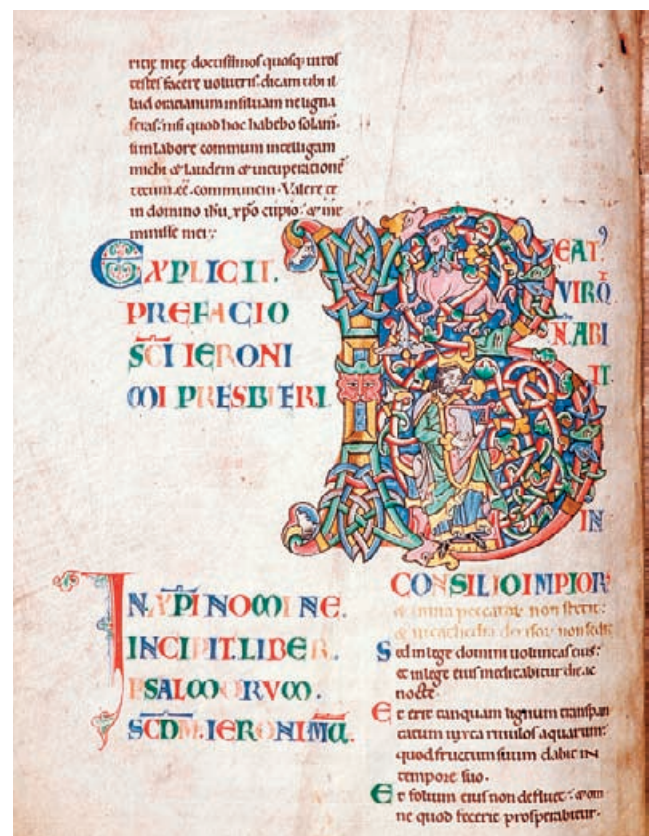 ritię męę doctissimos quosq; uiros
testes facere uolueris. dicam tibi il
lud oratianum in siluam ne ligna
feras. nisi quod hoc habebo solam̅.
si in labore communi intelligam
michi & laudem & uituperatione̅
tecum. e̅e̅. communem. Valere te
in domino ihu, xp̅o cupio. & me
minisse mei.
EXPLICIT.
PREFACIO
SC̅I IERONI
MI PRESBITERI.
IN XP̅I NOMINE.
INCIPIT. LIBER.
PSALMORVM.
SCD̅M. IERONIMU̅.
BEATꝰ
VIR Q̅
N̅ ABI
IT
IN
CONSILIO IMPIOR
& in uia peccator non stetit:
& in cathedra derisor non sedit
Sed in lege domini uoluntas eius:
& in lege eius meditabitur die ac
nocte.
Et erit tanquam lignum transplan
tatum iuxta riuulos aquarum:
quod fructum suum dabit IN
tempore suo.
Et folium eius non defluet: & om
ne quod fecerit prosperabitur.